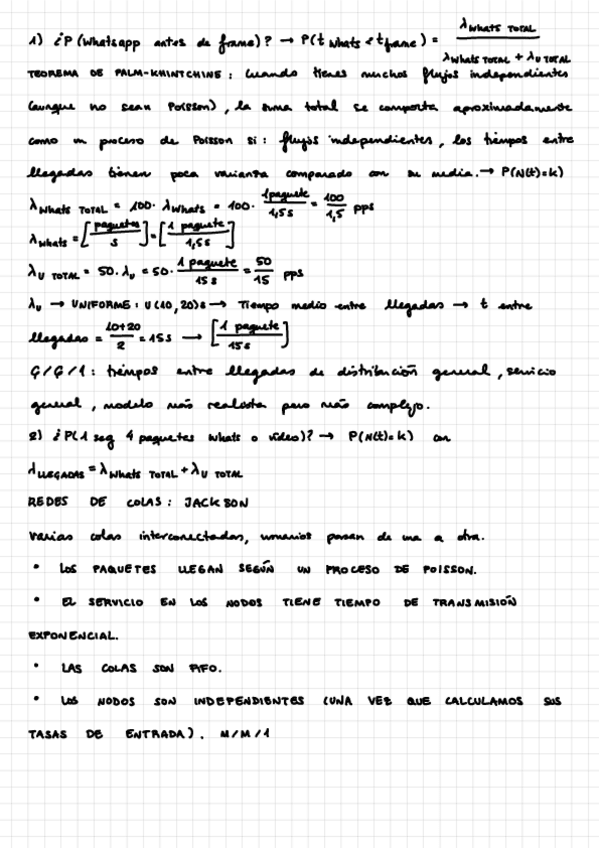 1) ¿P(Whatsapp antes de frame)? → P(t whats < t frame) = λ Whats TOTAL / λ Whats TOTAL + λ U TOTAL
TEOREMA DE PALM-KHINTCHINE: Cuando tienes muchos flujos independientes
(aunque no sean Poisson), la suma total se comporta aproximadamente
como un proceso de Poisson si: flujos independientes, los tiempos entre
llegadas tienen poca varianza comparado con su media. → P(N(t)=k)
λ Whats TOTAL = 100· λ Whats = 100· 1 paquete / 1,5s = 100 / 1,5 pps
λ Whats = [paquetes / s] = [1 paquete / 1,5s]
λ U TOTAL = 50· λ U = 50· 1 paquete / 15s = 50 / 15 pps
λ U → UNIFORME: U(10,20)s → Tiempo medio entre llegadas → t entre
llegadas = 10+20 / 2 = 15s → [1 paquete / 15s]
G/G/1: tiempos entre llegadas de distribución general, servicio
general, modelo más realista pero más complejo.
2) ¿P(1 seg 4 paquetes whats o video)? → P(N(t)=k) con
λ LLEGADAS = λ Whats TOTAL + λ U TOTAL
REDES DE COLAS: JACKSON
Varias colas interconectadas, usuarios pasan de una a otra.
• LOS PAQUETES LLEGAN SEGÚN UN PROCESO DE POISSON.
• EL SERVICIO EN LOS NODOS TIENE TIEMPO DE TRANSMISIÓN
EXPONENCIAL.
• LAS COLAS SON FIFO.
• LOS NODOS SON INDEPENDIENTES (UNA VEZ QUE CALCULAMOS SUS
TASAS DE ENTRADA). M/M/1